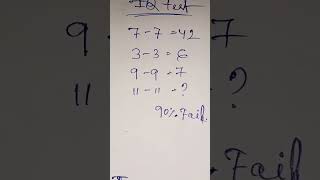 IQ test
7-7 = 42
3-3 = 6
9-9 = 7
11-11 = ?
90% Fail.
Fail